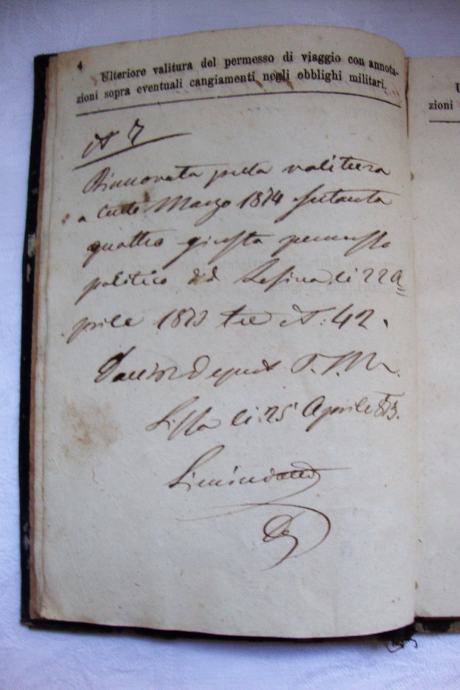 4 Ulteriore valitura del permesso di viaggio con annota-
zioni sopra eventuali cangiamenti negli obblighi militari.
N 7
Rinnovata pella valitura
a tutto Marzo 1874 settanta
quattro giusta permesso
politico dd Lesina li 22 A=
prile 1873 tre N. 42.
Lissa li 25 Aprile 873.
U
zioni